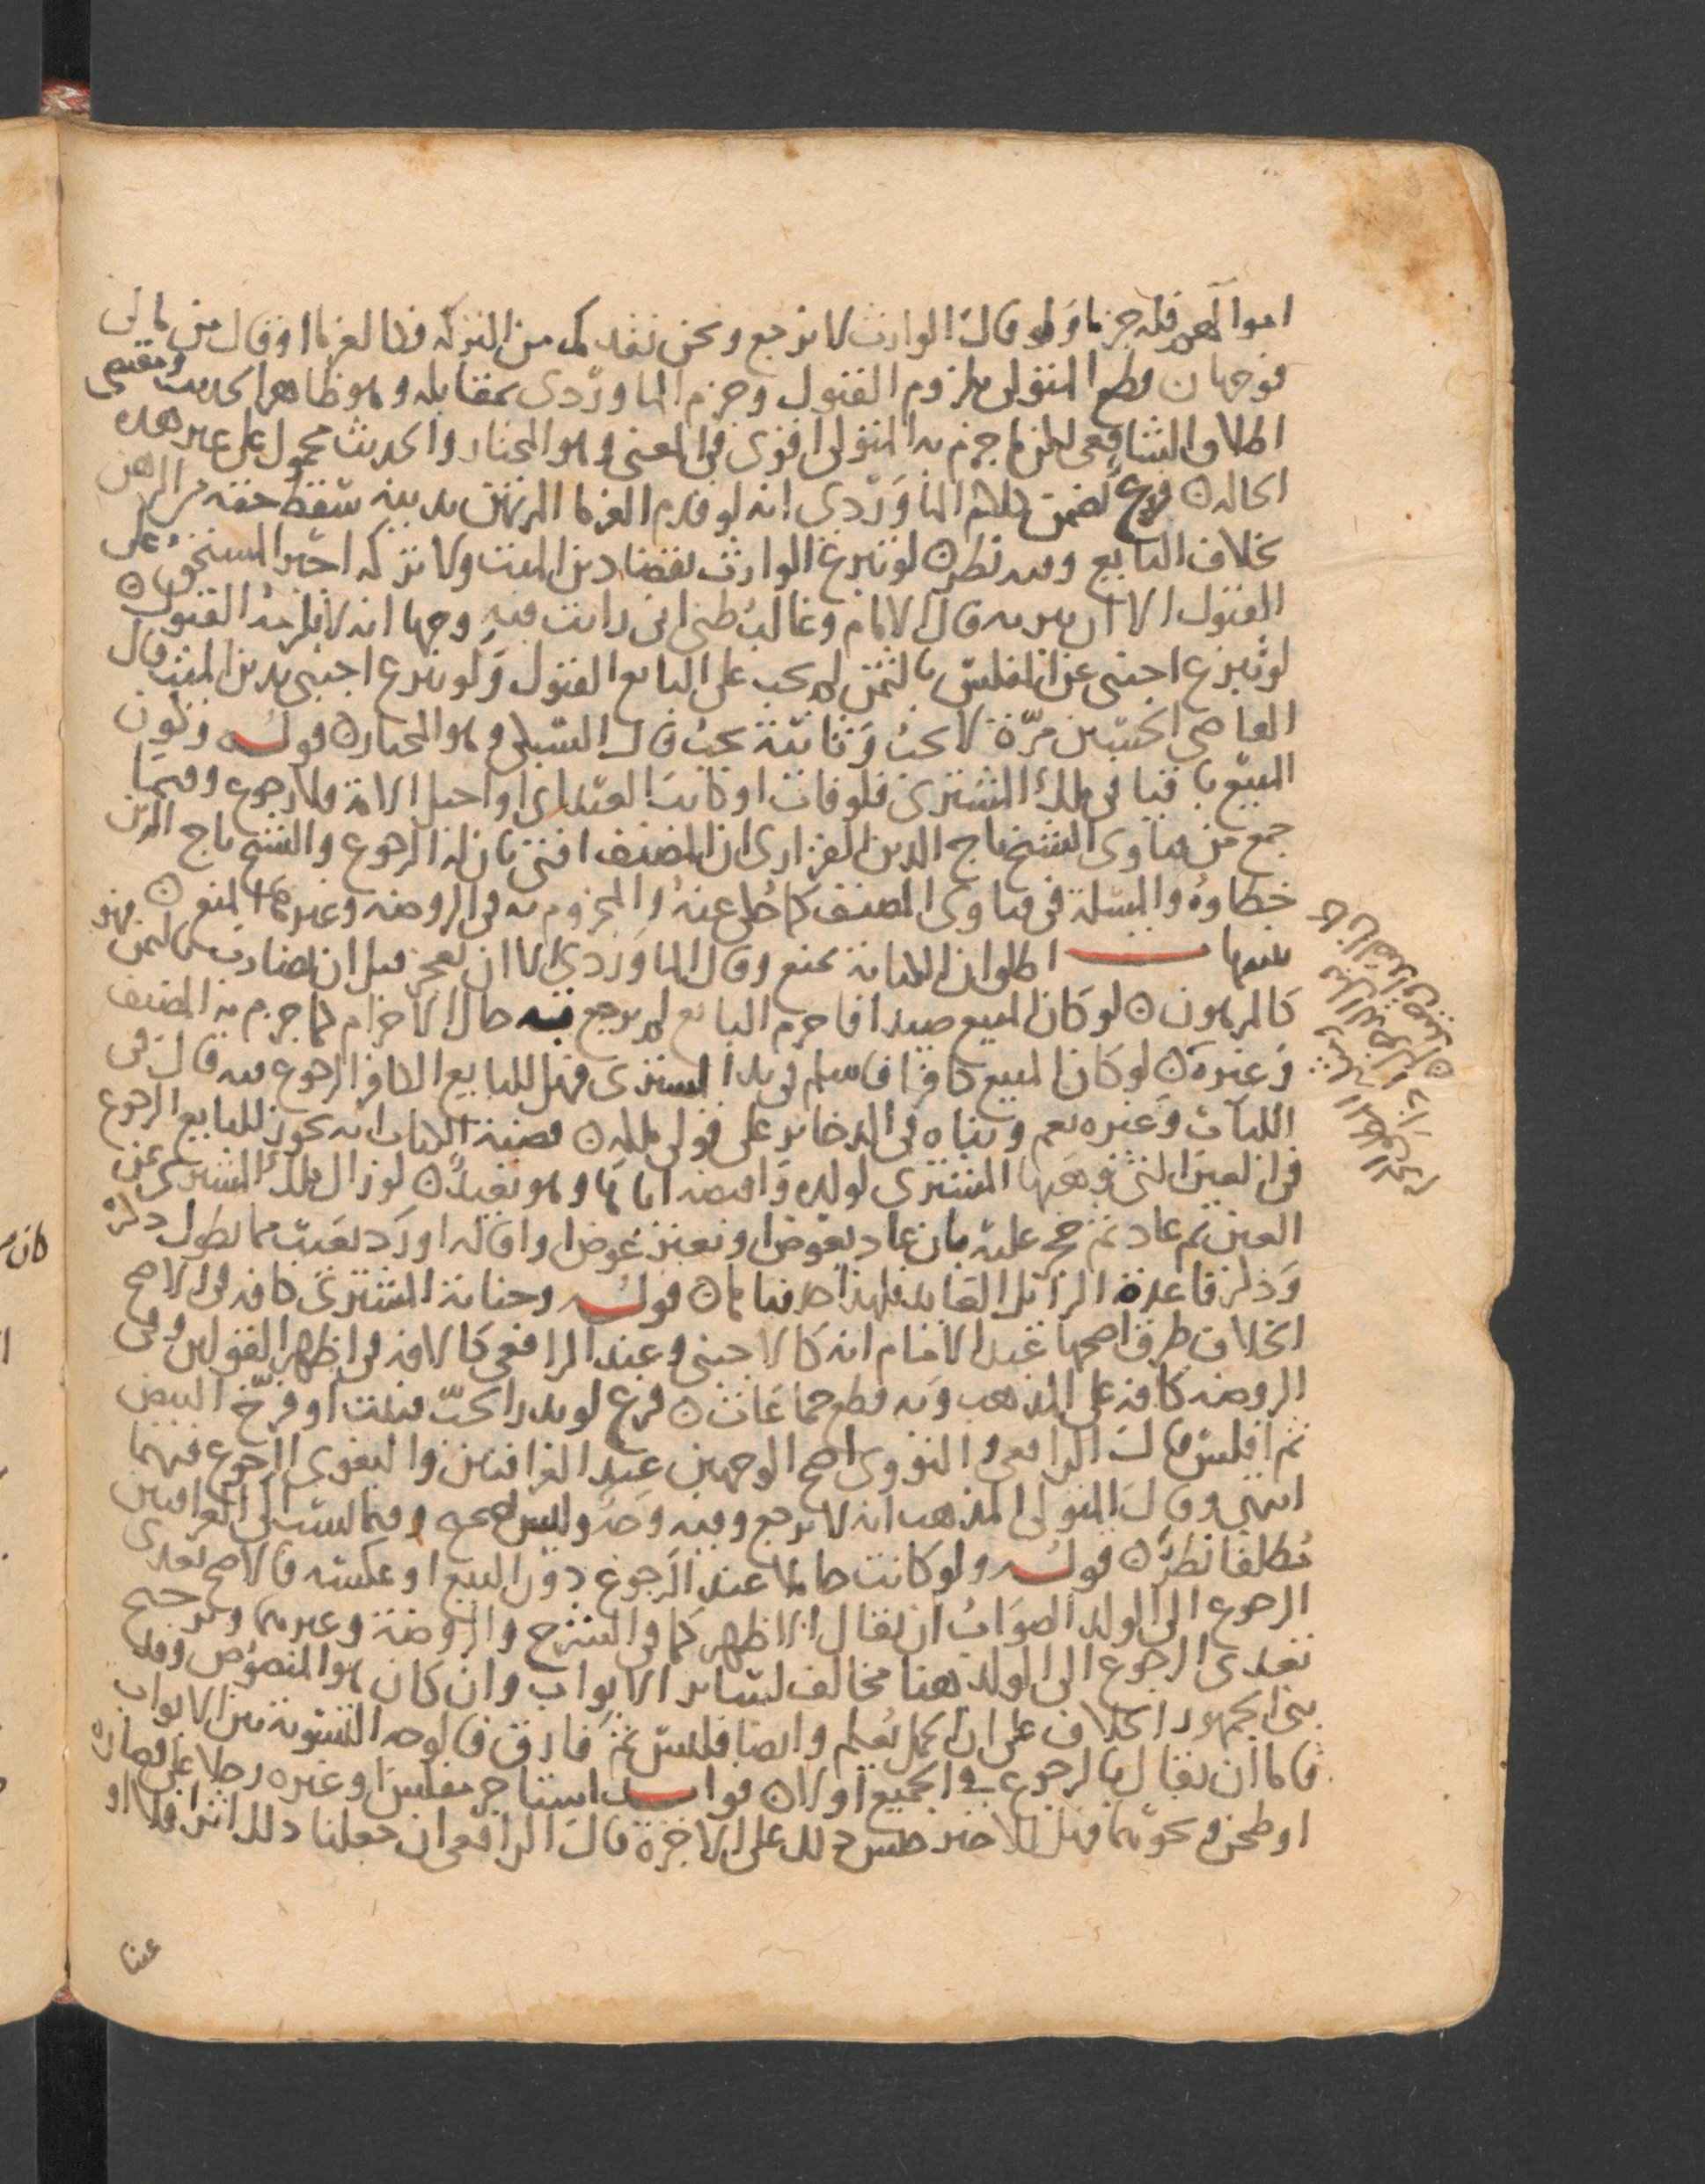 اموالهم فله جزما ولو قال الوارث لا ترجع ونحن نقدمك من التركة فطالعوا او قال من مالى
فوجهان قطع المتولى بلزوم القبول وجزم الماوردى بمقابله وهو ظاهر الحديث ومقتضى
اطلاق الشافعى لكن ما جزم به المتولى اقوى فى المعنى وهو المختار والحديث محمول على غير هذه
الحاله فرع تضمن كلام الماوردى انه لو قدم الغرما المرتهن بدينه سقط حقه من الرهن
بخلاف البايع وفيه نظر لو تبرع الوارث بقضا دين الميت ولا تركه اجبر المستحق على
القبول الا ان يبريه قال الامام وغالب ظنى انى رايت فيه وجها انه لا يلزمه القبول
لو تبرع اجنبى عن المفلس بالثمن لم يجب على البايع القبول ولو تبرع اجنبى بدين الميت قال
القاضى الحسين مرة لا يجب وثانية يجب قال السبكى وهو المختار قوله وكون
المبيع باقيا فى ملك المشترى فلو فات او كاتب العبد او احبل الامة فلا رجوع وفيما
جمع من فتاوى الشيخ تاج الدين الفزارى ان المصنف افتى بان له الرجوع والشيخ تاج الدين
خطاوه والمسلة فى فتاوى المصنف كما حكى عنه والمجزوم به فى الروضة وغيرها المنع
تنبيهات اطلق ان الكتابة تمنع وقال الماوردى الا ان يعجز قبل ان يضارب بالثمن فهو
كالمرهون لو كان المبيع صيدا فاحرم البايع لم يرجع فيه حال الاحرام كما جزم به المصنف
وغيره لو كان المبيع كافرا فاسلم فى يد المشترى فهل للبايع الكافر الرجوع فيه قال فى
اللباب وغيره نعم وبناه فى الذخاير على قولى ملكه قضية الكتاب انه يجوز للبايع الرجوع
فى العين التى وهبها المشترى لولده واقبضه اياها وهو بعيد لو زال ملك المشترى عن
العين ثم عاد ثم حجر عليه بان عاد بعوض او بغير عوض او اقاله او رد بعيب مما يطول ذكره
وذكر قاعدة الزايل العايد فلهذا حذفناها قوله وجناية المشترى كافه فى الاصح
الخلاف طرق اصحها عند الامام انه كالاجنبى وعند الرافعى كالافه فى اظهر القولين وفى
الروضة كافة على المذهب وبه قطع جماعات فرع لو بذر الحب فنبت او فرخ البيض
ثم افلس قال الرافعى والنووى اصح الوجهين عند العراقيين والبغوى الرجوع فيهما
انتهى وقال المتولى المذهب انه لا يرجع وفيه وجه وليس بصحيح وفيما نسب الى العراقيين
مطلقا نظر قوله ولو كانت حاملا عند الرجوع دون البيع او عكسه فالاصح تعدى
الرجوع الى الولد الصواب ان يقال الاظهر كما فى الشرح والروضة وغيرهما وترجيح
تعدى الرجوع الى الولد هنا مخالف لسائر الابواب وان كان هو المنصوص وقد
بنى الجمهور الخلاف على ان الحمل يعلم وايضا فليس ثم فارق فالوجه التسوية بين الابواب
فاما ان يقال بالرجوع فى الجميع اولا قوله استاجر مفلس او غيره رجلا على قصارة
او طحن ونحوهما فهل للاجير حبس ذلك على الاجرة قال الرافعى ان جعلنا ذلك اثرا فلا او
عينا